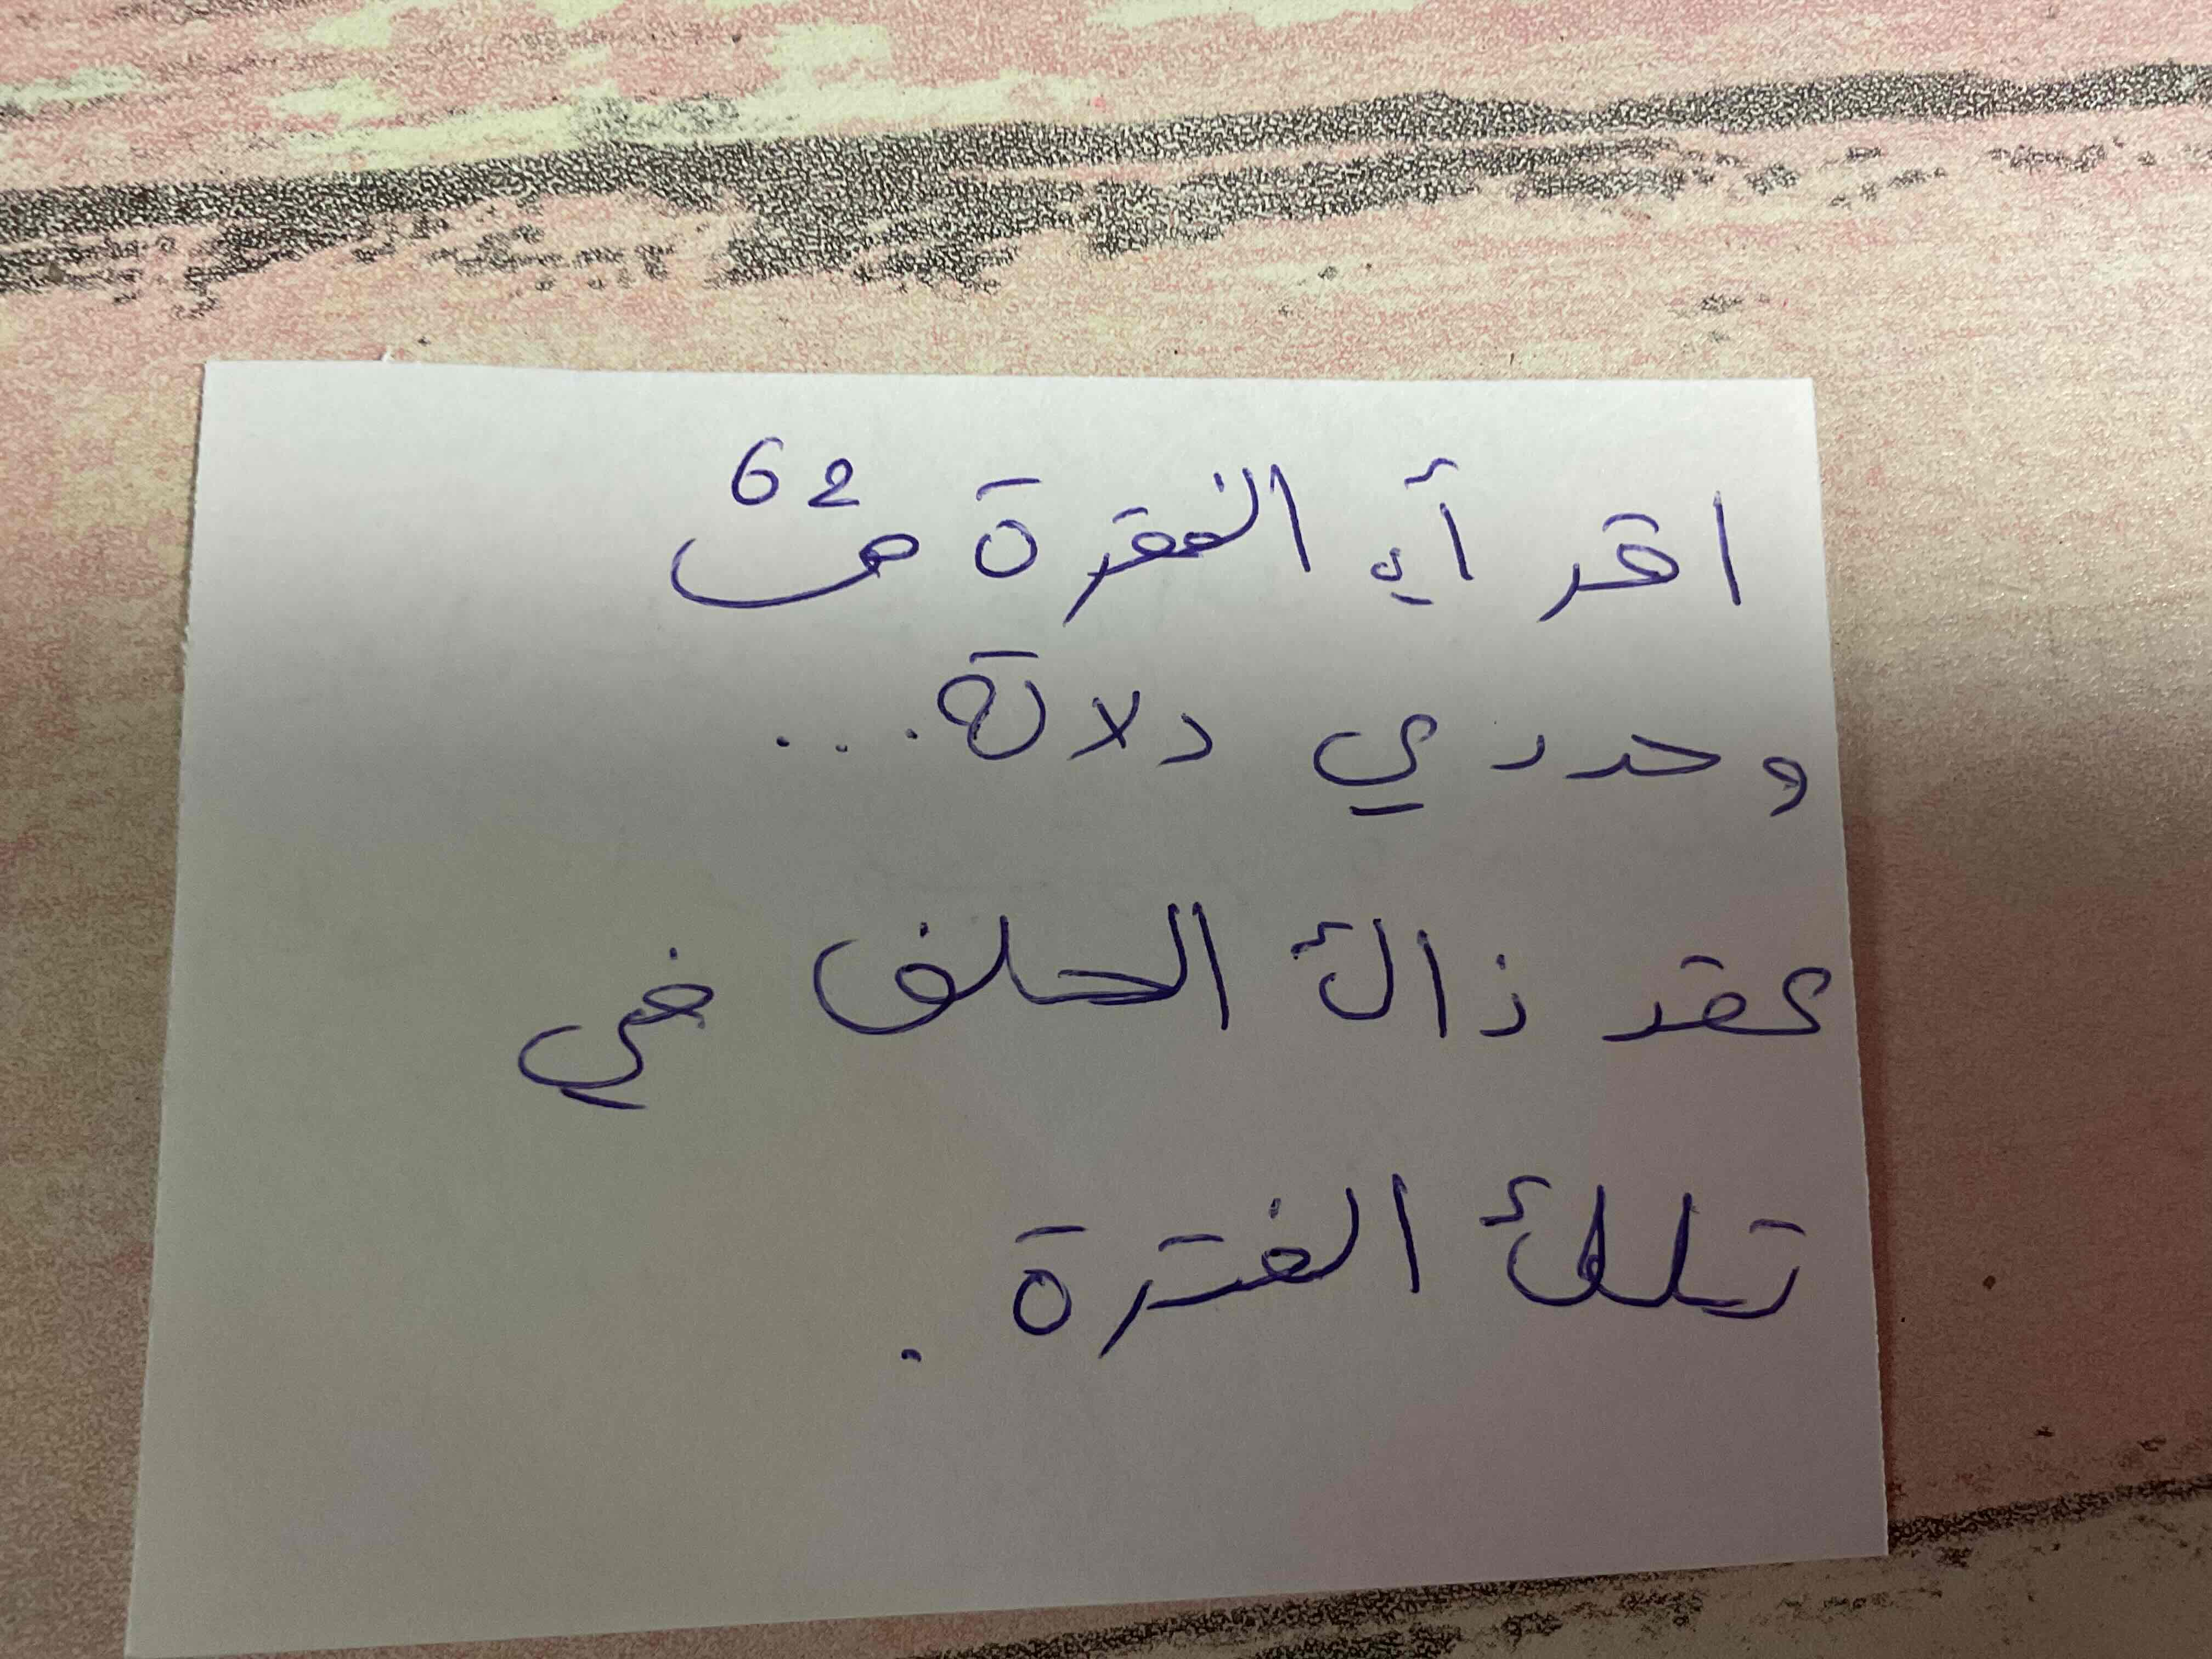 اقر أي الفقرة ص 62
وحددي دلالة...
عقد ذاك الحلف في
تلك الفترة.